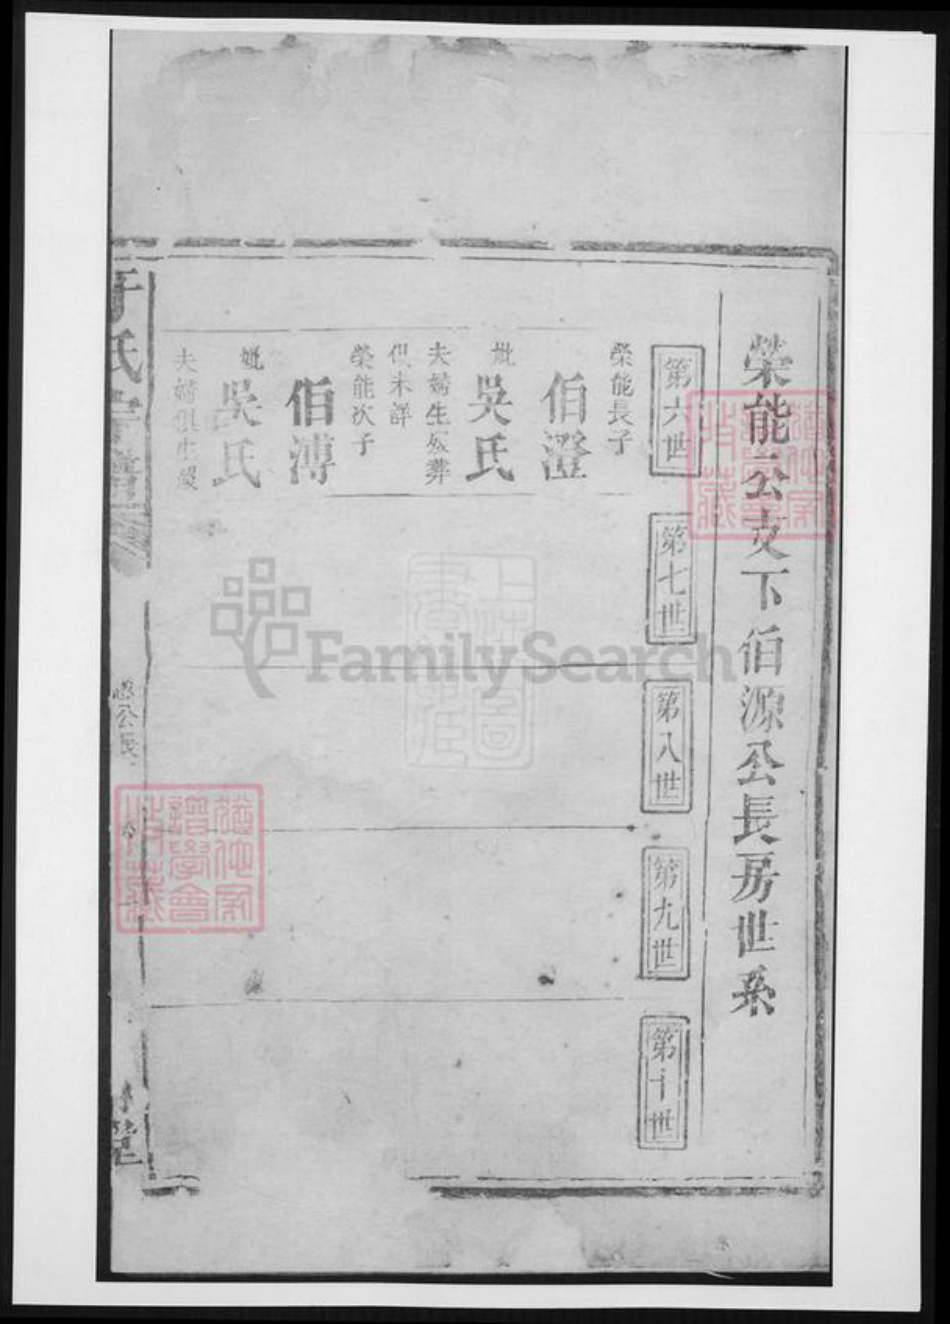 榮能公支下伯源公長房世系
第六世
第七世
第八世
第九世
第十世
榮能長子
伯澄
妣
吳氏
夫婦生歿葬
俱未詳
榮能次子
伯溥
妣
吳氏
夫婦俱生歿
氏宗譜
公長
堂
FamilySearch